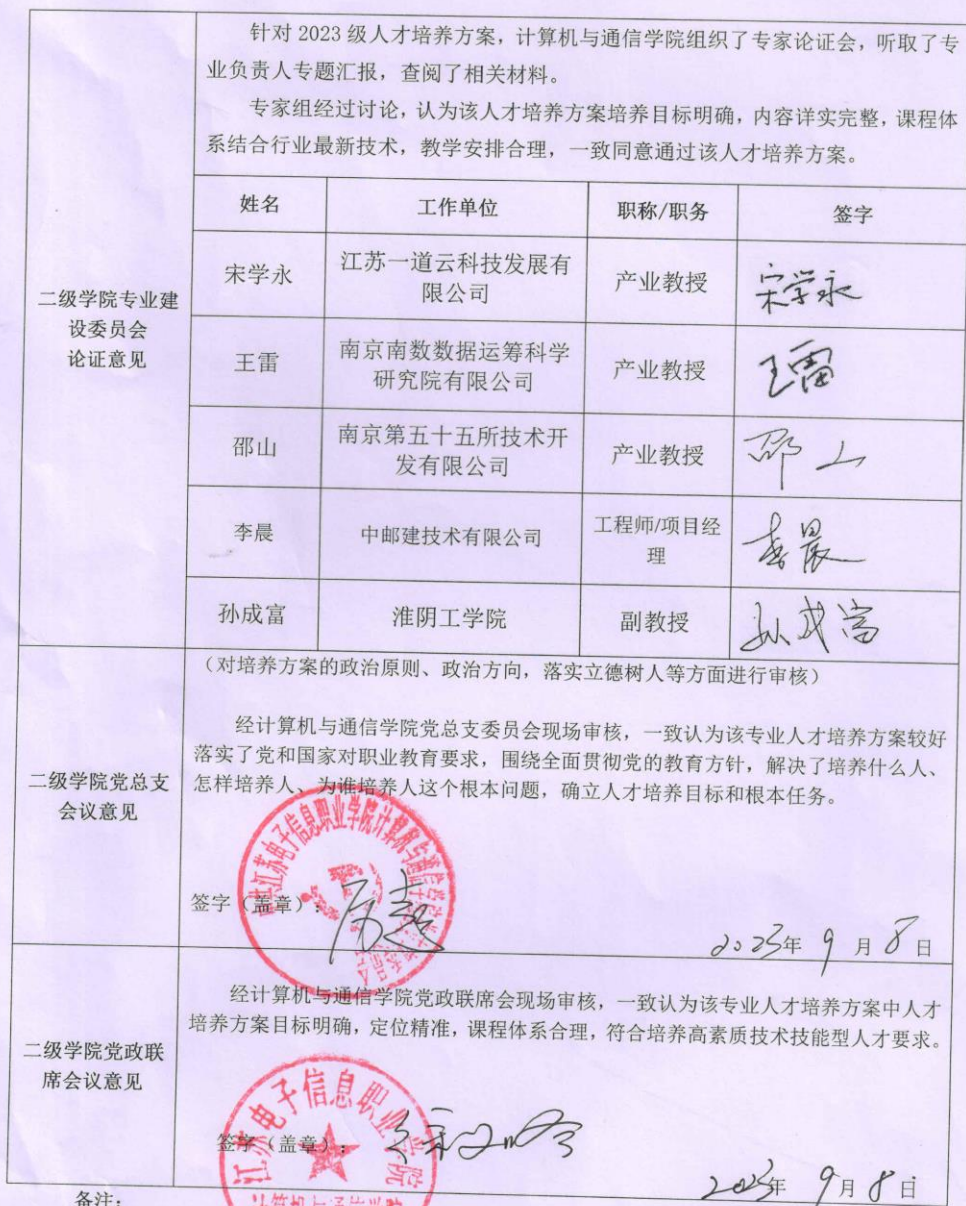 针对 2023 级人才培养方案，计算机与通信学院组织了专家论证会，听取了专
业负责人专题汇报，查阅了相关材料。
专家组经过讨论，认为该人才培养方案培养目标明确，内容详实完整，课程体
系结合行业最新技术，教学安排合理，一致同意通过该人才培养方案。
二级学院专业建
设委员会
论证意见
姓名 工作单位 职称/职务 签字
宋学永 江苏一道云科技发展有
限公司 产业教授 宋学永
王雷 南京南数数据运筹科学
研究院有限公司 产业教授 王雷
邵山 南京第五十五所技术开
发有限公司 产业教授 邵山
李晨 中邮建技术有限公司 工程师/项目经
理 李晨
孙成富 淮阴工学院 副教授 孙成富
二级学院党总支
会议意见
（对培养方案的政治原则、政治方向，落实立德树人等方面进行审核）
经计算机与通信学院党总支委员会现场审核，一致认为该专业人才培养方案较好
落实了党和国家对职业教育要求，围绕全面贯彻党的教育方针，解决了培养什么人、
怎样培养人、为谁培养人这个根本问题，确立人才培养目标和根本任务。
江苏电子信息职业学院计算机与通信
签字（盖章）：
2023年 9 月 8 日
二级学院党政联
席会议意见
经计算机与通信学院党政联席会现场审核，一致认为该专业人才培养方案中人才
培养方案目标明确，定位精准，课程体系合理，符合培养高素质技术技能型人才要求。
江苏电子信息职业学院
签字（盖章）：
计算机与通信学院
2023年 9月 8 日
备注：